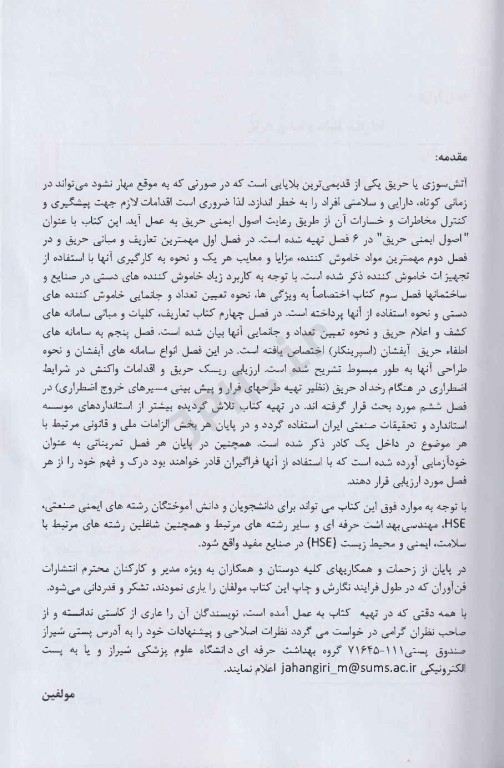 مقدمه:
آتش‌سوزی یا حریق یکی از قدیمی‌ترین بلایایی است که در صورتی که به موقع مهار نشود می‌تواند در
زمانی کوتاه، دارایی و سلامتی افراد را به خطر اندازد. لذا ضروری است اقدامات لازم جهت پیشگیری و
کنترل مخاطرات و خسارات آن از طریق رعایت اصول ایمنی حریق به عمل آید. این کتاب با عنوان
"اصول ایمنی حریق" در ۶ فصل تهیه شده است. در فصل اول مهمترین تعاریف و مبانی حریق و در
فصل دوم مهمترین مواد خاموش کننده، مزایا و معایب هر یک و نحوه به کارگیری آنها با استفاده از
تجهیزات خاموش کننده ذکر شده است. با توجه به کاربرد زیاد خاموش کننده های دستی در صنایع و
ساختمانها فصل سوم کتاب اختصاصاً به ویژگی ها، نحوه تعیین تعداد و جانمایی خاموش کننده های
دستی و نحوه استفاده از آنها پرداخته است. در فصل چهارم کتاب تعاریف، کلیات و مبانی سامانه های
کشف و اعلام حریق و نحوه تعیین تعداد و جانمایی آنها بیان شده است. فصل پنجم به سامانه های
اطفاء حریق آبفشان (اسپرینکلر) اختصاص یافته است. در این فصل انواع سامانه های آبفشان و نحوه
طراحی آنها به طور مبسوط تشریح شده است. ارزیابی ریسک حریق و اقدامات واکنش در شرایط
اضطراری در هنگام رخداد حریق (نظیر تهیه طرحهای فرار و پیش بینی مسیرهای خروج اضطراری) در
فصل ششم مورد بحث قرار گرفته اند. در تهیه کتاب تلاش گردیده بیشتر از استانداردهای موسسه
استاندارد و تحقیقات صنعتی ایران استفاده گردد و در پایان هر بخش الزامات ملی و قانونی مرتبط با
هر موضوع در داخل یک کادر ذکر شده است. همچنین در پایان هر فصل تمریناتی به عنوان
خودآزمایی آورده شده است که با استفاده از آنها فراگیران قادر خواهند بود درک و فهم خود را از هر
فصل مورد ارزیابی قرار دهند.
با توجه به موارد فوق این کتاب می تواند برای دانشجویان و دانش آموختگان رشته های ایمنی صنعتی،
HSE، مهندسی بهداشت حرفه ای و سایر رشته های مرتبط و همچنین شاغلین رشته های مرتبط با
سلامت، ایمنی و محیط زیست (HSE) در صنایع مفید واقع شود.
در پایان از زحمات و همکاریهای کلیه دوستان و همکاران به ویژه مدیر و کارکنان محترم انتشارات
فن‌آوران که در طول فرایند نگارش و چاپ این کتاب مولفان را یاری نمودند، تشکر و قدردانی می‌شود.
با همه دقتی که در تهیه کتاب به عمل آمده است، نویسندگان آن را عاری از کاستی ندانسته و از
صاحب نظران گرامی در خواست می گردد نظرات اصلاحی و پیشنهادات خود را به آدرس پستی شیراز
صندوق پستی ۱۱۱-۷۱۶۴۵ گروه بهداشت حرفه ای دانشگاه علوم پزشکی شیراز و یا به پست
الکترونیکی jahangiri_m@sums.ac.ir اعلام نمایند.
مولفین